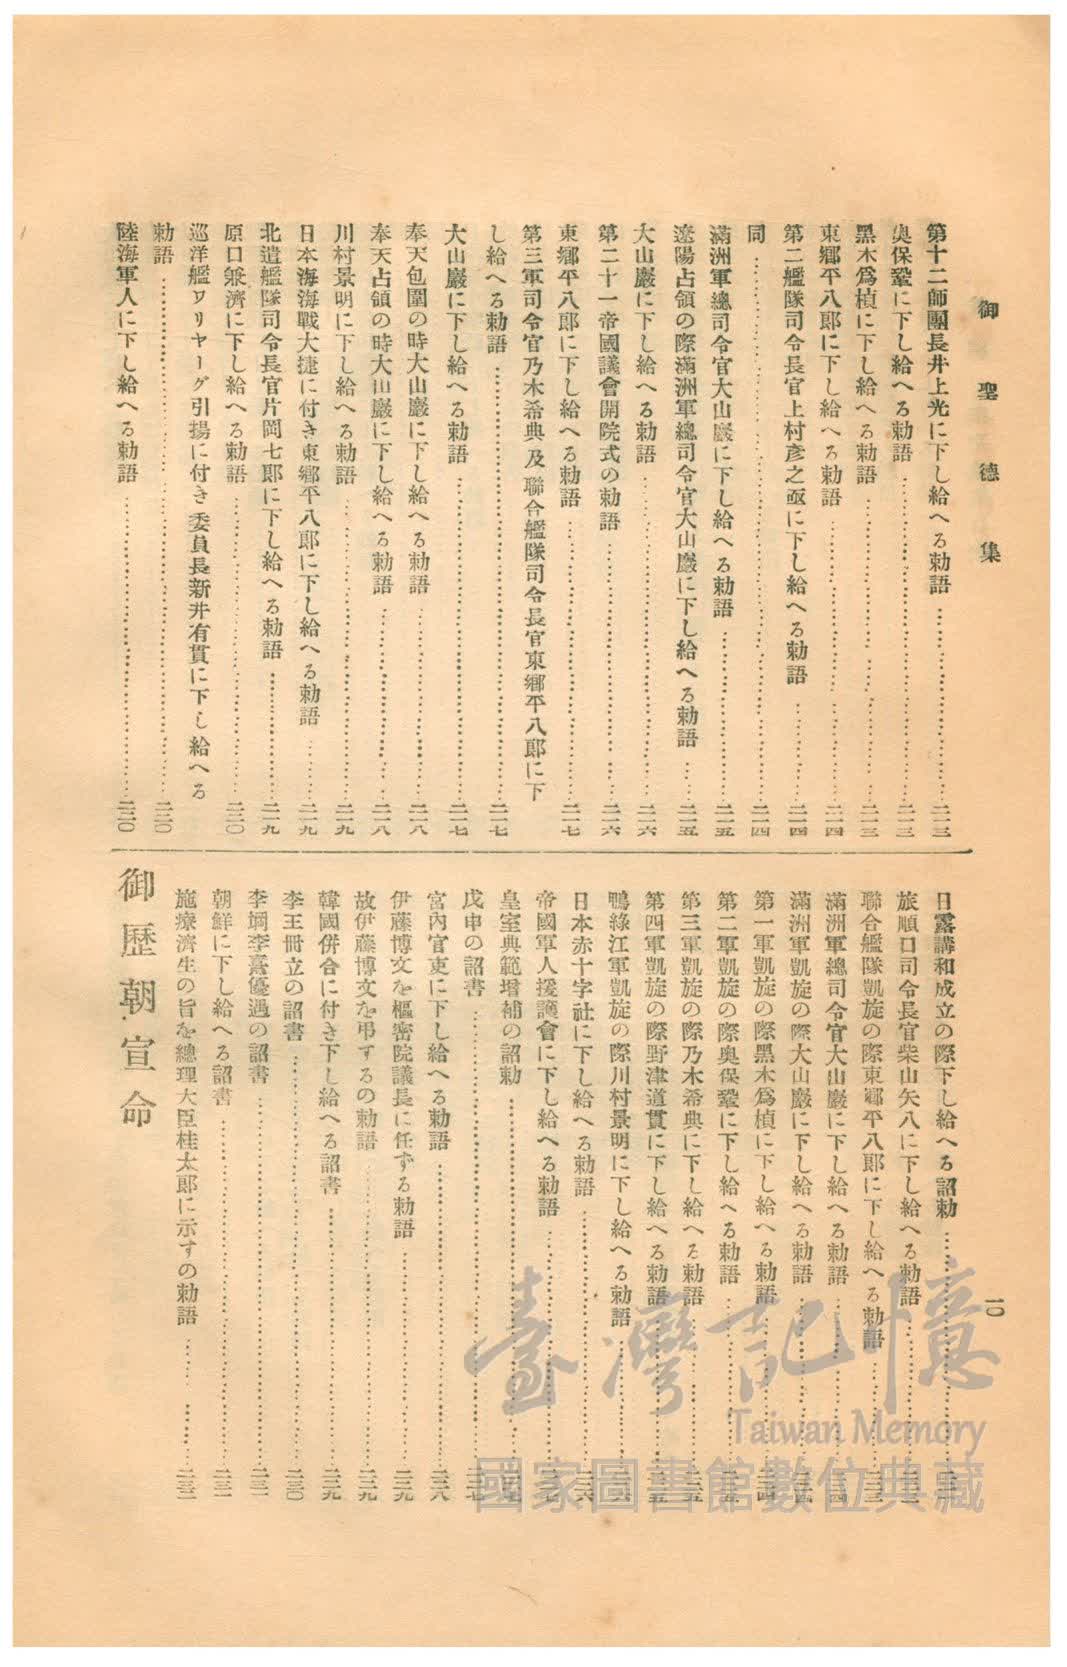 御聖德集
一〇
第十二師團長井上光に下し給へる勅語…………二一三
奥保鞏に下し給へる勅語…………二一三
黑木爲楨に下し給へる勅語…………二一三
東鄕平八郞に下し給へる勅語…………二一四
第二艦隊司令長官上村彥之亟に下し給へる勅語…………二一四
同…………二一四
滿洲軍總司令官大山巖に下し給へる勅語…………二一五
遼陽占領の際滿洲軍總司令官大山巖に下し給へる勅語……二一五
大山巖に下し給へる勅語…………二一六
第二十一帝國議會開院式の勅語…………二一六
東鄕平八郞に下し給へる勅語…………二一七
第三軍司令官乃木希典及聯合艦隊司令長官東鄕平八郞に下
し給へる勅語…………二一七
大山巖に下し給へる勅語…………二一七
奉天包圍の時大山巖に下し給へる勅語…………二一八
奉天占領の時大山巖に下し給へる勅語…………二一八
川村景明に下し給へる勅語…………二一九
日本海海戰大捷に付き東鄕平八郞に下し給へる勅語……二一九
北遣艦隊司令長官片岡七郞に下し給へる勅語…………二一九
原口兼濟に下し給へる勅語…………二二〇
巡洋艦ワリヤーグ引揚に付き委員長新井有貫に下し給へる
勅語…………二二〇
陸海軍人に下し給へる勅語…………二二〇
日露講和成立の際下し給へる詔勅…………
旅順口司令長官柴山矢八に下し給へる勅語…………
聯合艦隊凱旋の際東鄕平八郞に下し給へる勅語…………
滿洲軍總司令官大山巖に下し給へる勅語…………
滿洲軍凱旋の際大山巖に下し給へる勅語…………
第一軍凱旋の際黑木爲楨に下し給へる勅語…………
第二軍凱旋の際奥保鞏に下し給へる勅語…………
第三軍凱旋の際乃木希典に下し給へる勅語…………
第四軍凱旋の際野津道貫に下し給へる勅語…………
鴨綠江軍凱旋の際川村景明に下し給へる勅語…………
日本赤十字社に下し給へる勅語…………
帝國軍人援護會に下し給へる勅語…………
皇室典範增補の詔勅…………
戊申の詔書…………
宮內官吏に下し給へる勅語…………二二八
伊藤博文を樞密院議長に任ずる勅語…………二二九
故伊藤博文を弔するの勅語…………二二九
韓國倂合に付き下し給へる詔書…………二二九
李王冊立の詔書…………二三〇
李堈李熹優遇の詔書…………二三一
朝鮮に下し給へる詔書…………二三一
施療濟生の旨を總理大臣桂太郞に示すの勅語…………二三二
御歷朝宣命
臺灣記憶
Taiwan Memory
國家圖書館數位典藏